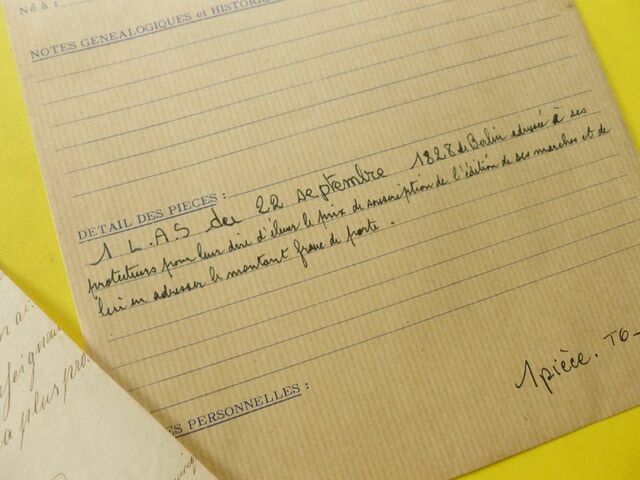 Né à :
NOTES GENEALOGIQUES et HISTORIQ
DETAIL DES PIECES :
1 L.A.S du 22 septembre 1828 de Berlin adressée à ses
protecteurs pour leur dire d'élever le prix de souscription de l'édition de ses marches et de
lui en adresser le montant franc de porte -
1 pièce. TG-
ES PERSONNELLES :
a plus pro